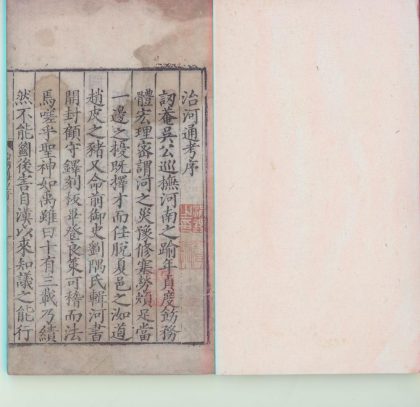 治河通考序
訒菴吳公巡撫河南之踰年貞度飭務
體宏理密謂河之災豫修寨勞頗足當
一邊之擾既擇才而任脫夏邑之泇道
趙皮之豬又命前御史劉隅氏輯河書
開封顧守鐸刻板畢登良策可稽而法
焉嗟乎聖神如禹雖曰十有三載乃績
然不能劉後告自漢以來知議之能行